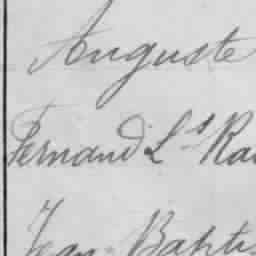 Auguste
Fernand Ls Ra
Jean Bapti